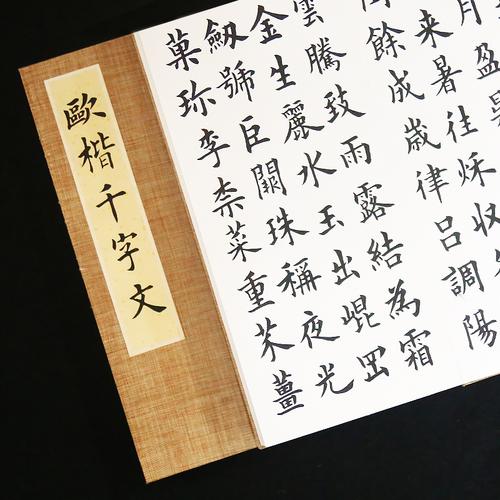 歐楷千字文
月盈
来暑往秋收
餘成歳律呂調陽
雲騰致雨露結為霜
金生麗水玉出崐岡
劒號巨闕珠稱夜光
菓珎李柰菜重芥薑